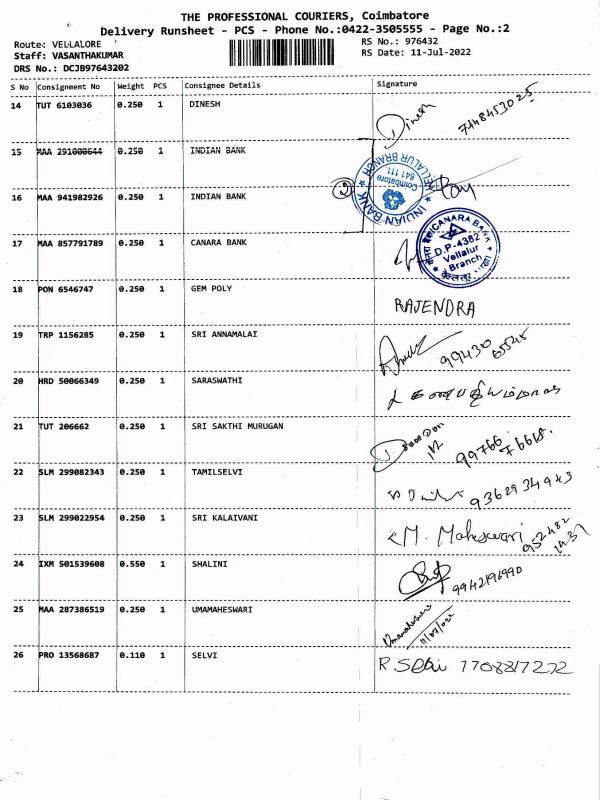 THE PROFESSIONAL COURIERS, Coimbatore
Delivery Runsheet - PCS - Phone No.:0422-3505555 - Page No.:2
Route: VELLALORE
RS No.: 976432
Staff: VASANTHAKUMAR
RS Date: 11-Jul-2022
DRS No.: DCJB97643202
S No Consignment No Weight PCS Consignee Details Signature
14 TUT 6103036 0.250 1 DINESH Dinesh 7448453025
15 MAA 291000644 0.250 1 INDIAN BANK
INDIAN BANK VELLALUR BRANCH
Coimbatore
641 111
16 MAA 941982926 0.250 1 INDIAN BANK
17 MAA 857791789 0.250 1 CANARA BANK
CANARA BANK
D.P-4382
Vellalur
Branch
18 PON 6546747 0.250 1 GEM POLY RAJENDRA
19 TRP 1156285 0.250 1 SRI ANNAMALAI 99430 65545
20 HRD 50066349 0.250 1 SARASWATHI
21 TUT 206662 0.250 1 SRI SAKTHI MURUGAN 99766 76668
22 SLM 299082343 0.250 1 TAMILSELVI 9362934943
23 SLM 299022954 0.250 1 SRI KALAIVANI M. Maheswari 952482 1437
24 IXM 501539608 0.550 1 SHALINI 9942196990
25 MAA 287386519 0.250 1 UMAMAHESWARI Umamaheswari
11/07/022
26 PRO 13568687 0.110 1 SELVI R. Selvi 7708817272